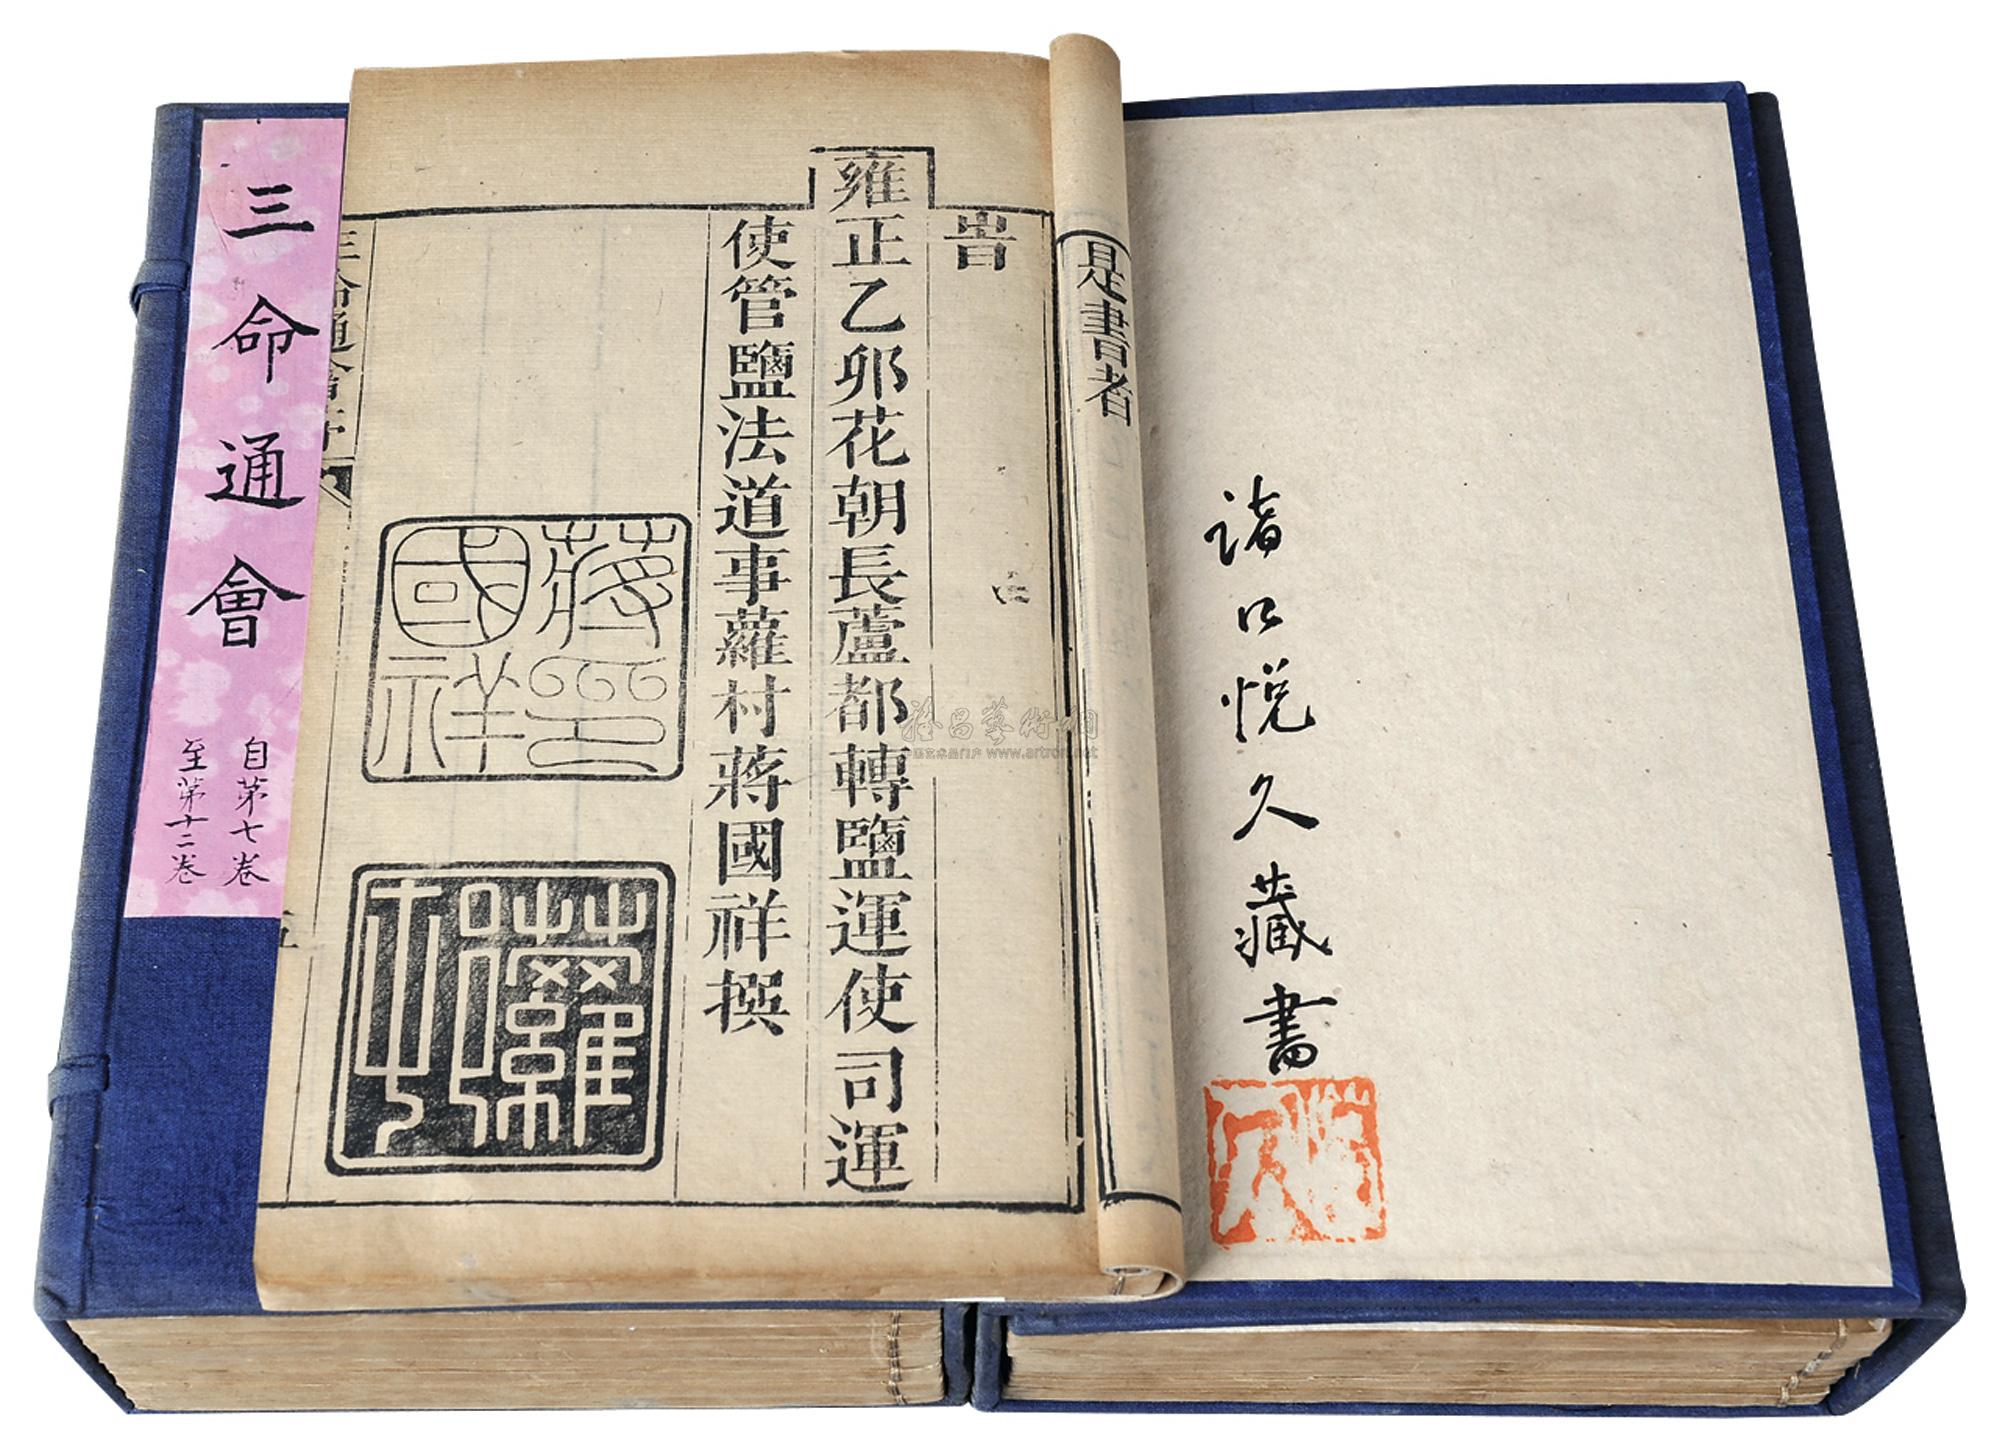 三命通會
自第七卷
至第十二卷
是書者
旹
雍正乙卯花朝長蘆都轉鹽運使司運
使管鹽法道事蘿村蔣國祥撰
蔣國祥印
蘿村
三命通會序
諸口悅久藏書
雅昌藝術網
中国艺术品门户 www.artron.net